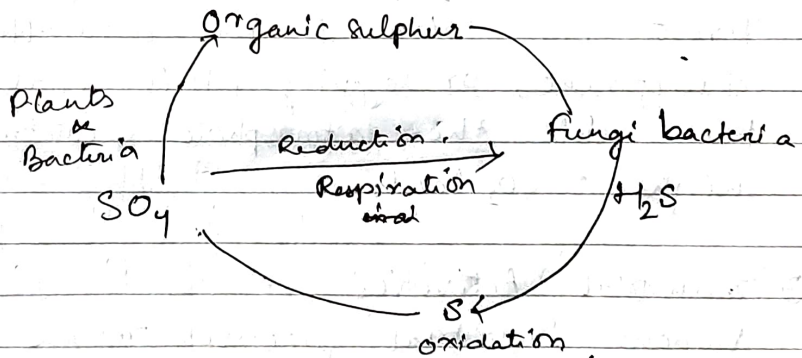 Organic sulphur
Plants
&
Bacteria
Reduction.
Respiration
Fungi bacteria
H2S
SO4
S
oxidation